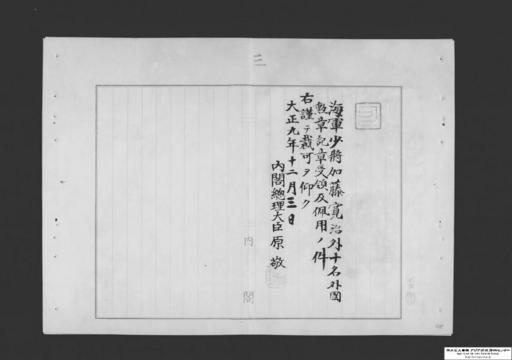 三
海軍少將加藤寛治外十名外國
勲章記章受領及佩用ノ件
右謹テ裁可ヲ仰ク
大正九年十二月三日
內閣總理大臣原敬
內閣